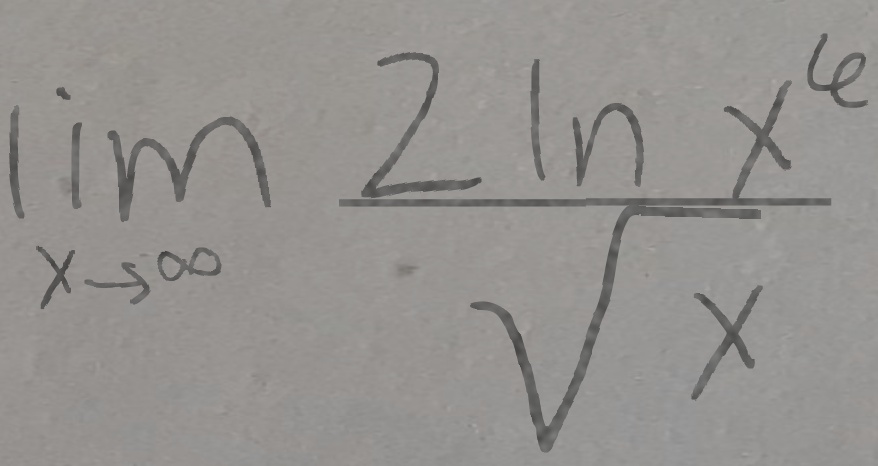 lim x→∞ 2 ln x^6 / √x